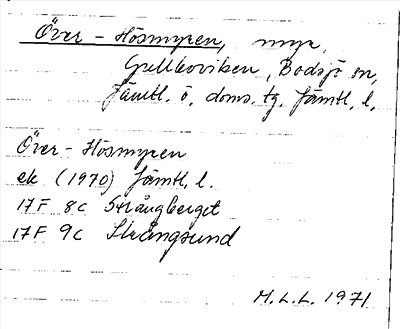 Över-Hösmyren, myr,
Gulleoviken, Bodsjö sn,
Jämtl. ö. doms. tg. Jämtl. l.
Över-Hösmyren
ek (1970) Jämtl. l.
17F 8c Strångberget
17F 9c Strångsund
M.L.L. 1971